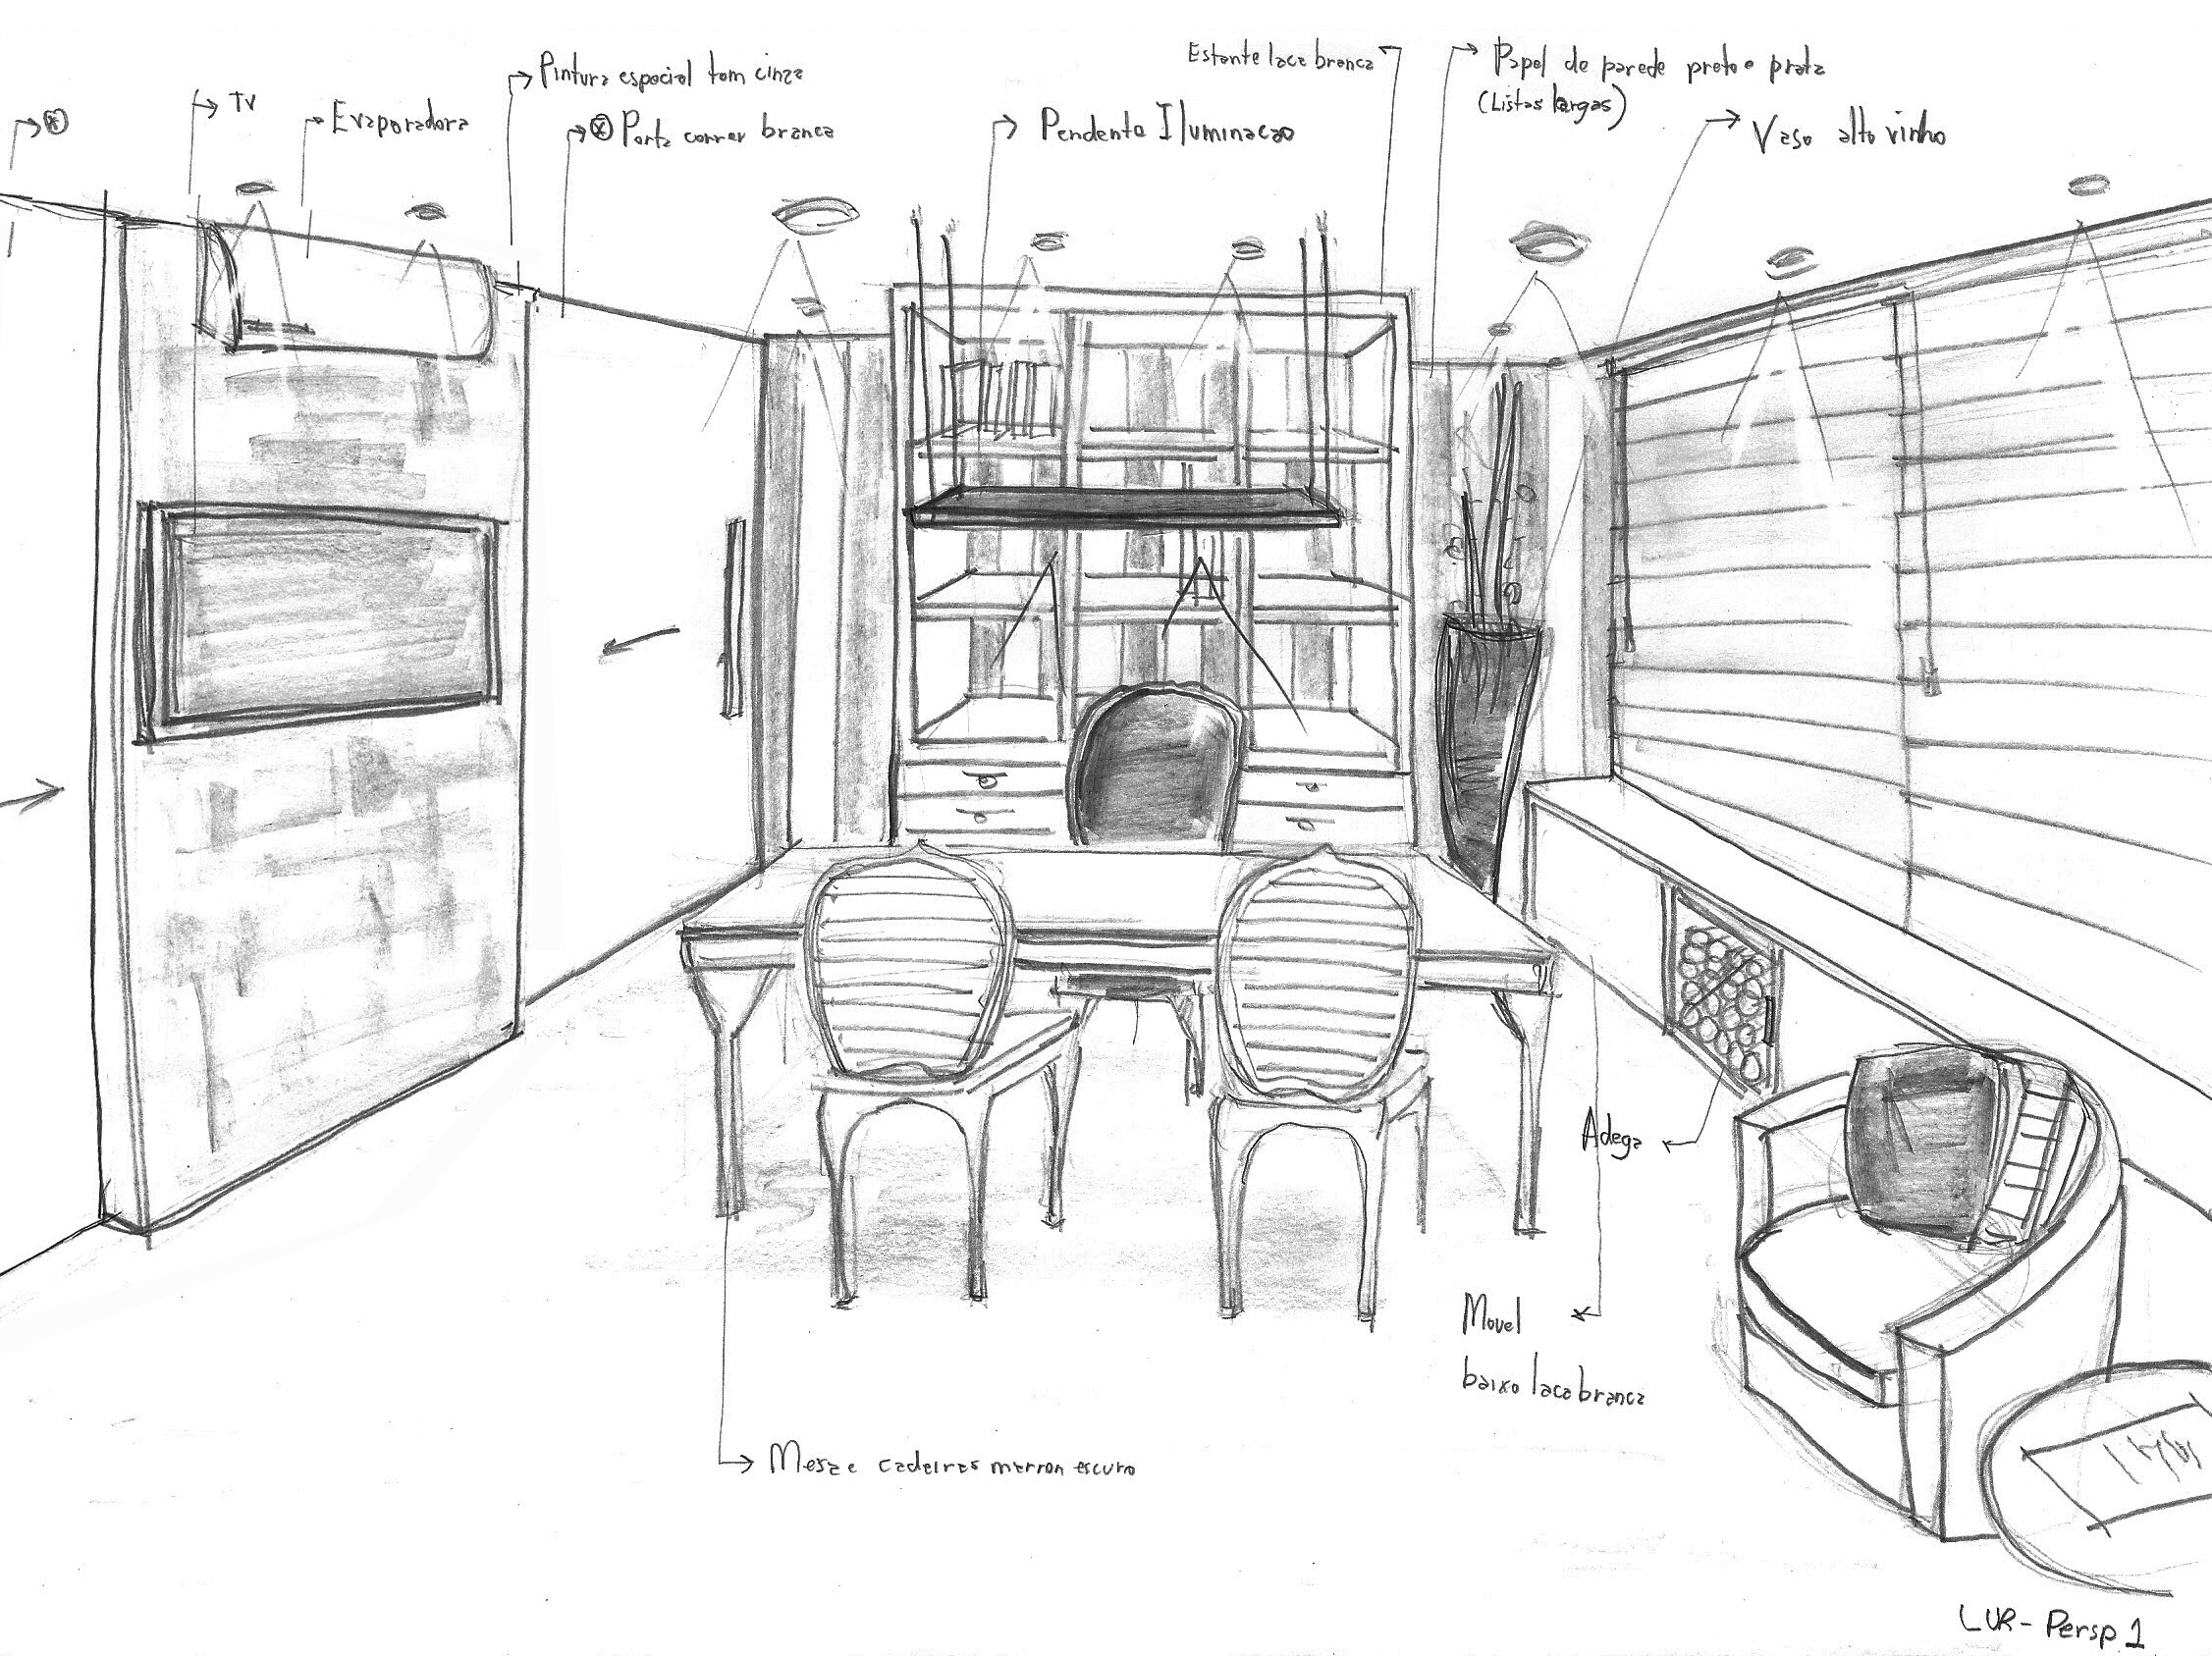 Pintura especial tom cinza
Estante laca branca
Papel de parede preto e prata
(Listas largas)
TV
Evaporadora
Porta correr branca
Pendente Iluminacao
Vaso alto vinho
Adega
Movel
baixo laca branca
Mesa e cadeiras marron escuro
LUR - Persp. 1